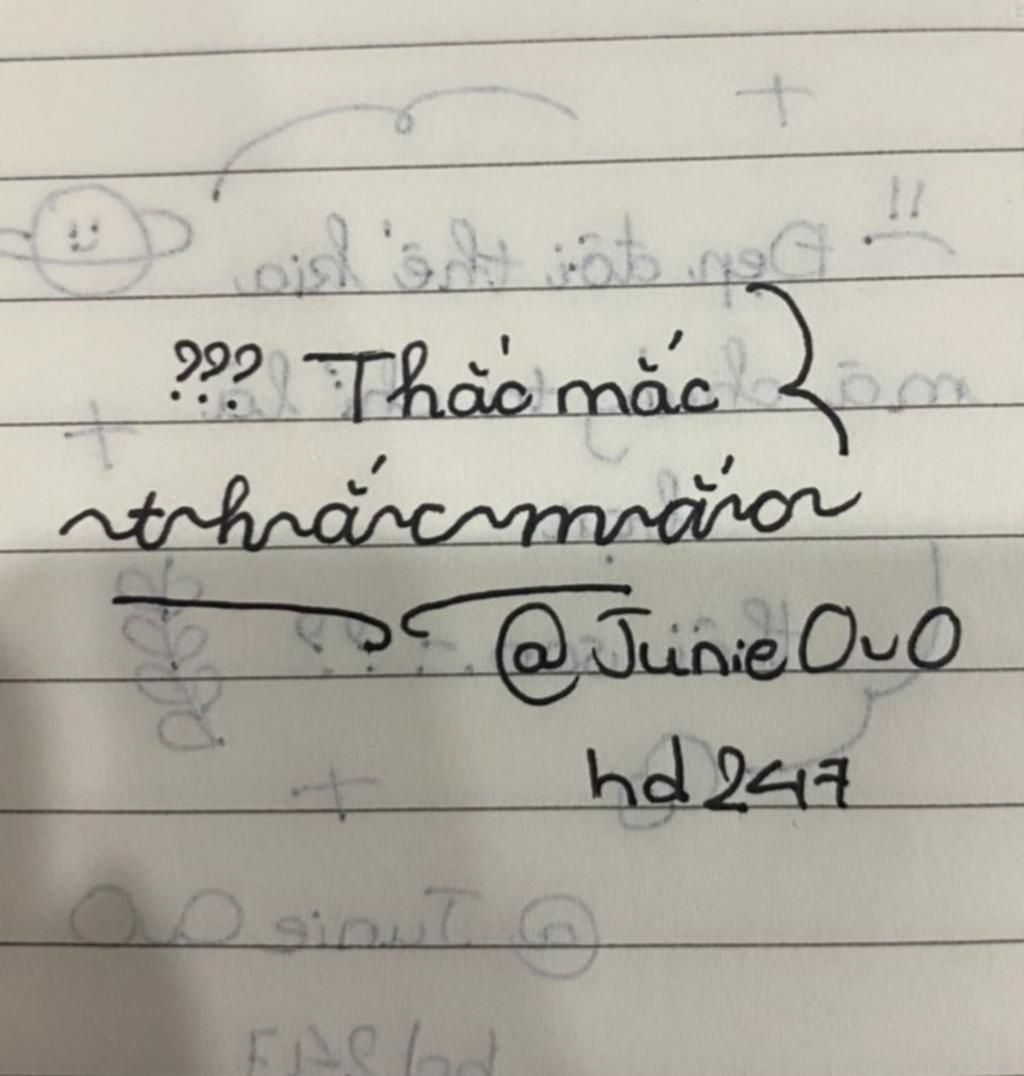 ??? Thắc mắc
thắcmắc
@JunieOvO
hd247